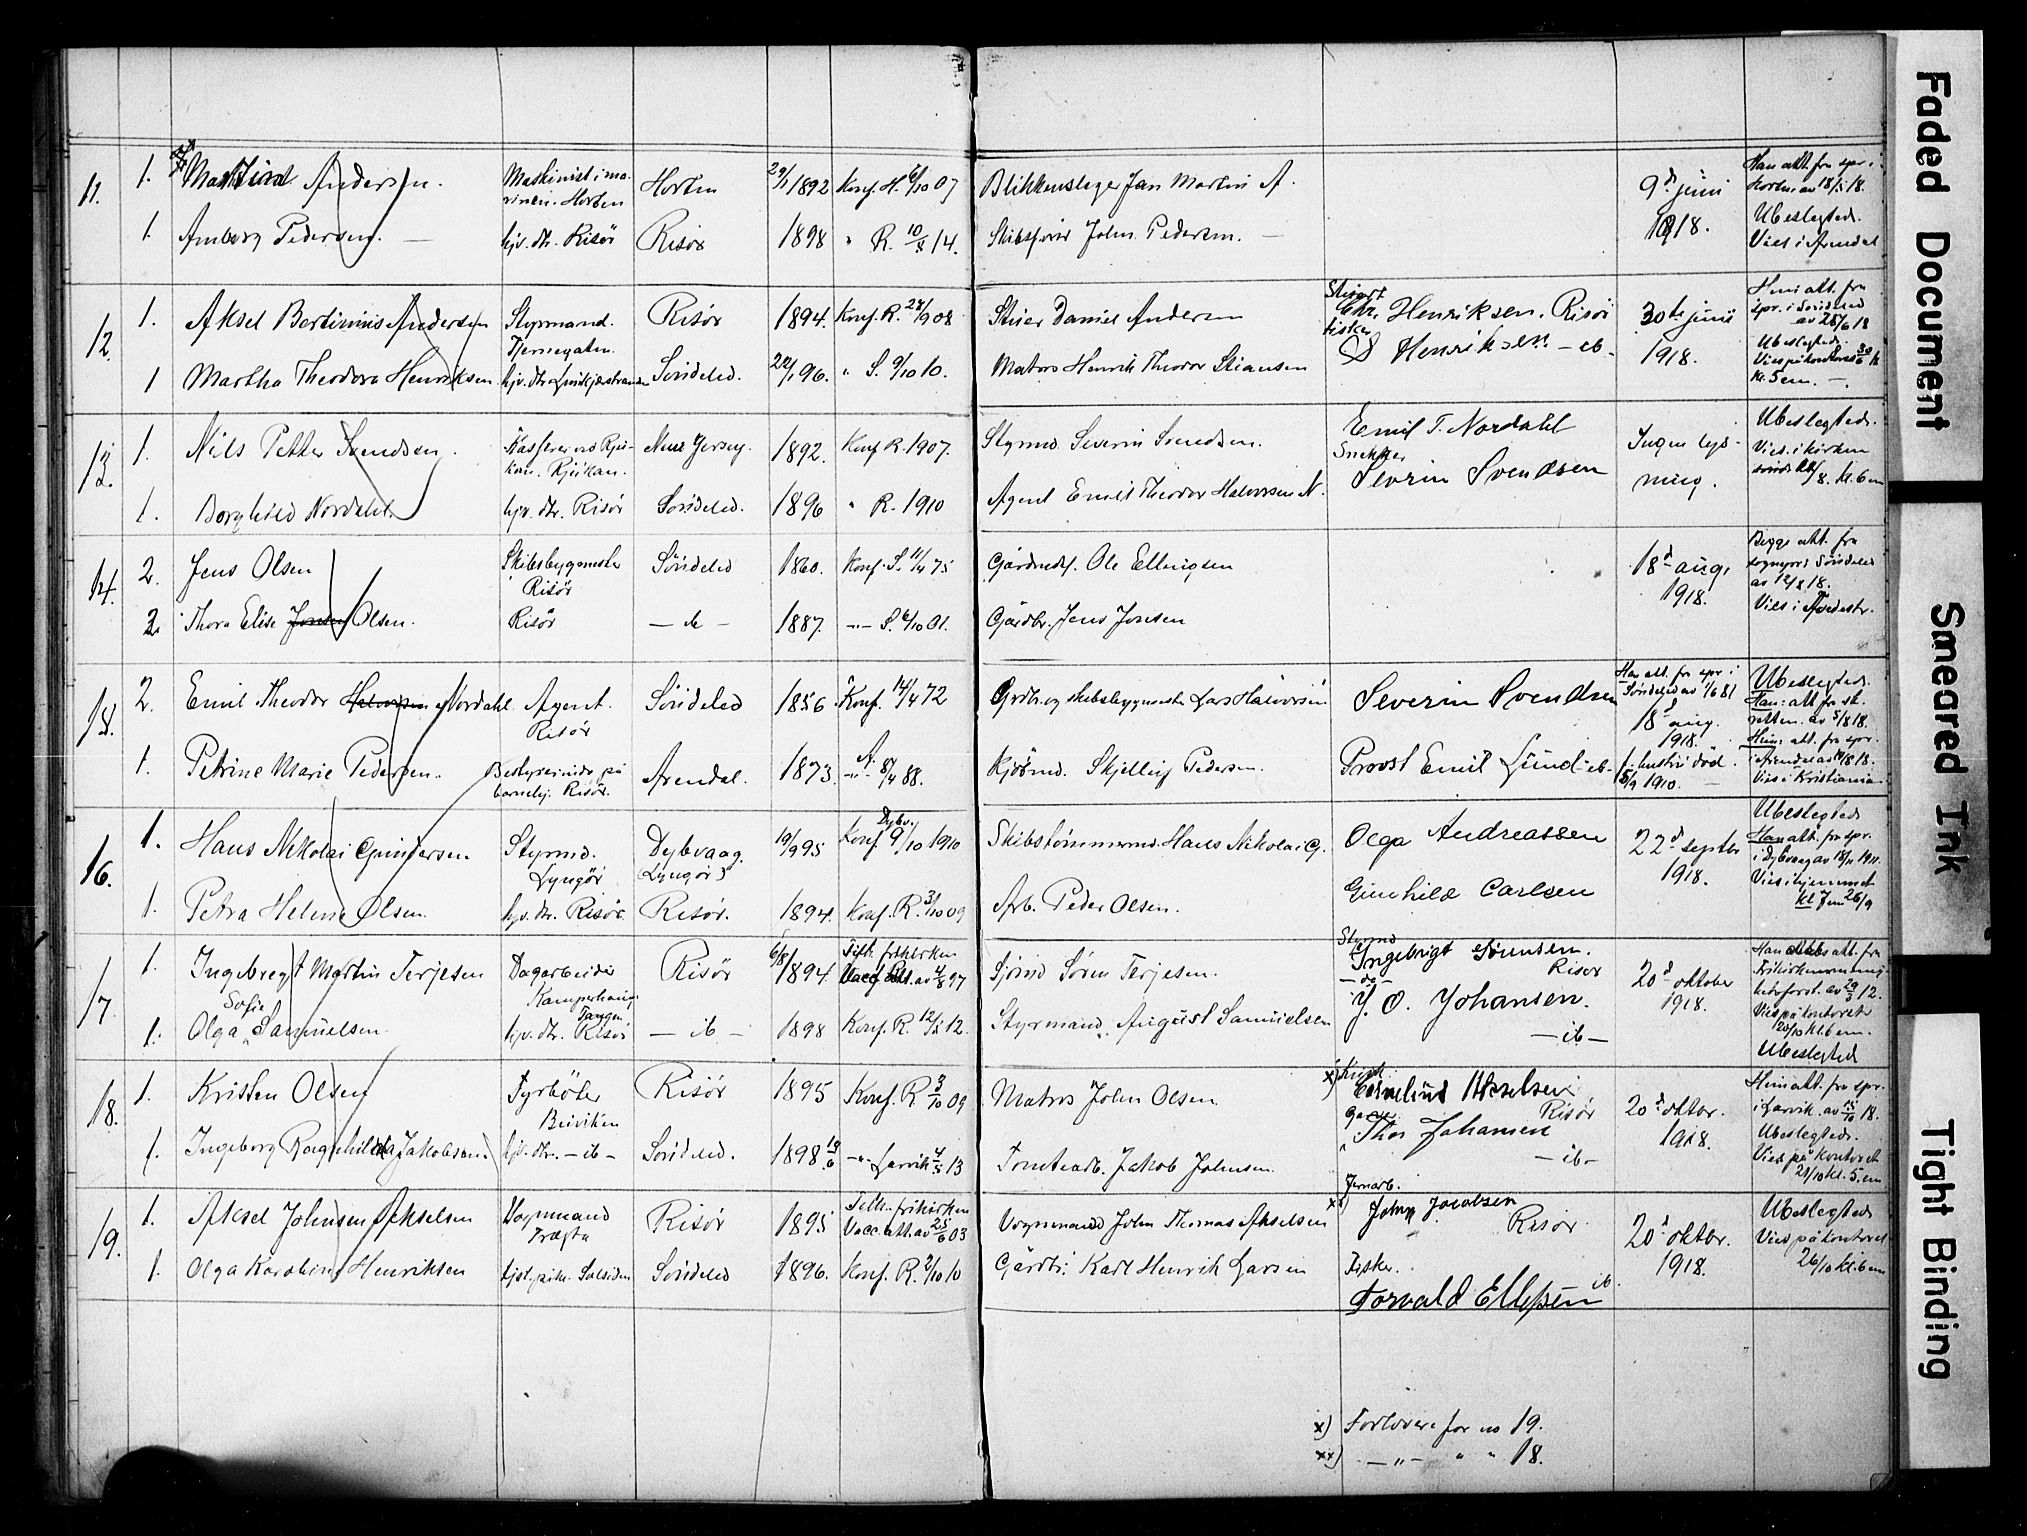 11.
1. Andersen.
Maskinist i ma-
rinen. Horten
Horten
29/1 1892
Konf. H. 6/10 07
Blikkenslager Jan Martin A.
9d juni
1918.
Han att. fra spr. i
Horten av 18/5 18.
Ubeslegted.
Vies i Arendal
1. Amborg Pedersen. —
hjv. dtr. Risör
Risör
1898
" R. 10/5 14.
Skibsförer John Pedersen. —
12.
1. Aksel Bertinius Andersen
Styrmand.
Tjernegaten.
Risör
1894.
Konf. R. 27/9 08
Stuer Daniel Andersen
Chr. Henriksen. Risör
fisker
Henriksen. — ib —
30te juni
1918.
Hun att. fra
spr. i Söndeled
av 28/6 18
Ubeslegted.
Vies på kontoret 30/6
kl. 5 em. —
1 Martha Theodora Henriksen
hjv. dtr.
Söndeled.
22/1 96.
" S. 9/10 10.
Matros Henrik Theodor Stiansen
13.
1. Nils Petter Svendsen.
Kasserer ved Rju-
kan. Rjukan.
New Jersey.
1892.
Konf R. 1907.
Styrmd. Severin Svendsen.
Emil T. Nordahl
Snekker
Severin Svendsen
Ingen lys-
ning.
Ubeslegted.
Vies i kirken
/8. kl. 6 em
1. Borghild Nordahl
hjv. dtr. Risör
Söndeled.
1896
" R. 1910
Agent Emil Theodor Halvorsen N.
14.
2. Jens Olsen
Skibsbygmester
Risör
Söndeled
1860.
Konf. S. 11/4 75
Gårdmd. Ole Ellingsen
18d aug.
1918.
Begge att. fra
sogneprs. i Söndeled
av 12/8 18.
Vies i Tvedestr.
2. Thora Elise Jonsen Olsen.
Risör
— ib —
1887.
—"— S. 6/10 01.
Gårdbr. Jens Jonsen
15.
2. Emil Theodor Halvorsen Nordahl
Agent.
Risör
Söndeled
1856
Konf. 14/4 72
Grdbr. og skibsbygmester Lars Halvorsen
Severin Svendsen
Han att. fra spr. i
Söndeled av 1/6 81
18d aug.
1918.
Ubeslegted.
Han: att fra sk.
retten. av 5/8 18.
Hun: att. fra spr.
i Arendal av 14/8 18.
Vies i Kristiania
1. Petrine Marie Pedersen.
Bestyrerinde på
barnehj. Risör.
Arendal.
1873.
—"— A. 8/4 88.
Kjöbmd. Skjelling Pedersen.
Provst Emil Lund — ib —
f. hustru död
5/9 1910. —
16.
1. Hans Nikolai Gundersen
Styrmd.
Lyngör
Dybvaag
Lyngör
19/9 95
Dybv.
Konf. 9/10 1910
Skibstömmermd. Hans Nikolai G.
Olga Andreassen
22d septbr
1918.
Ubeslegted
Han att. fra spr.
i Dybvaag av 18/11 1911.
Vies i hjemmet
kl. 7 em 26/9
1. Petra Helene Olsen.
hjv. dtr. Risör.
Risör.
1894.
Konf. R. 3/10 09
Arb. Peder Olsen.
Gunhild Carlsen
17.
1. Ingebregt Martin Terjesen
Dagarbeider
Kamperhaug
Risör
6/8 1894
Tilh. frikirken
Vacc. att. av 4/8 97
Sjömd Sören Terjesen.
Styrmd
Ingebrigt Sörensen.
Risör
20d oktober
1918.
Han att. fra
Frikirkemenig-
hetsforst. av 29/3 12.
Vies på kontoret
20/10 kl. 6 em.
Ubeslegted
Sofie
1. Olga Samuelsen
Tangen
hjv. dtr. Risör
— ib —
1898
Konf. R. 12/5 12.
Styrmand August Samuelsen
— do —
J. O. Johansen.
— ib —
18.
1. Kristen Olsen
Fyrböter
Buviken
Risör
1895
Konf. R 3/10 09
Matros John Olsen.
x)
Cornelius Akselsen
Risör
20d oktbr.
1918.
Hun att. fra spr.
i Larvik. av 15/10 18.
Ubeslegted.
Vies på kontoret
kl. 5. em
1. Ingeborg Ragnhilda Jakobsen.
hjv. dtr. — ib —
Söndeled.
1898 19/6
—"— Larvik 4/5 13
Tomtearb. Jakob Johnsen
Thor Johansen
— ib —
19.
1. Aksel Johnsen Akselsen
Vognmand
Trægta
Risör
1895
Tilh. frikirken
Vacc. att. av 25/6 03
Vognmand John Thomas Akselsen
Jernarb.
John Jacobsen
Risör.
20d oktbr.
1918.
Ubeslegted
Vies på kontoret
26/10 kl. 6 em
1. Olga Karoline Henriksen
tjpike. Solsiden
Söndeled
1896.
Konf. R. 2/10 10
Gårdbr. Karl Henrik Larsen
Fisker.
Torvald Ellefsen ib
x) Forlovere for no 19.
xx) —"— " " 18.
Faded Document
Smeared Ink
Tight Binding